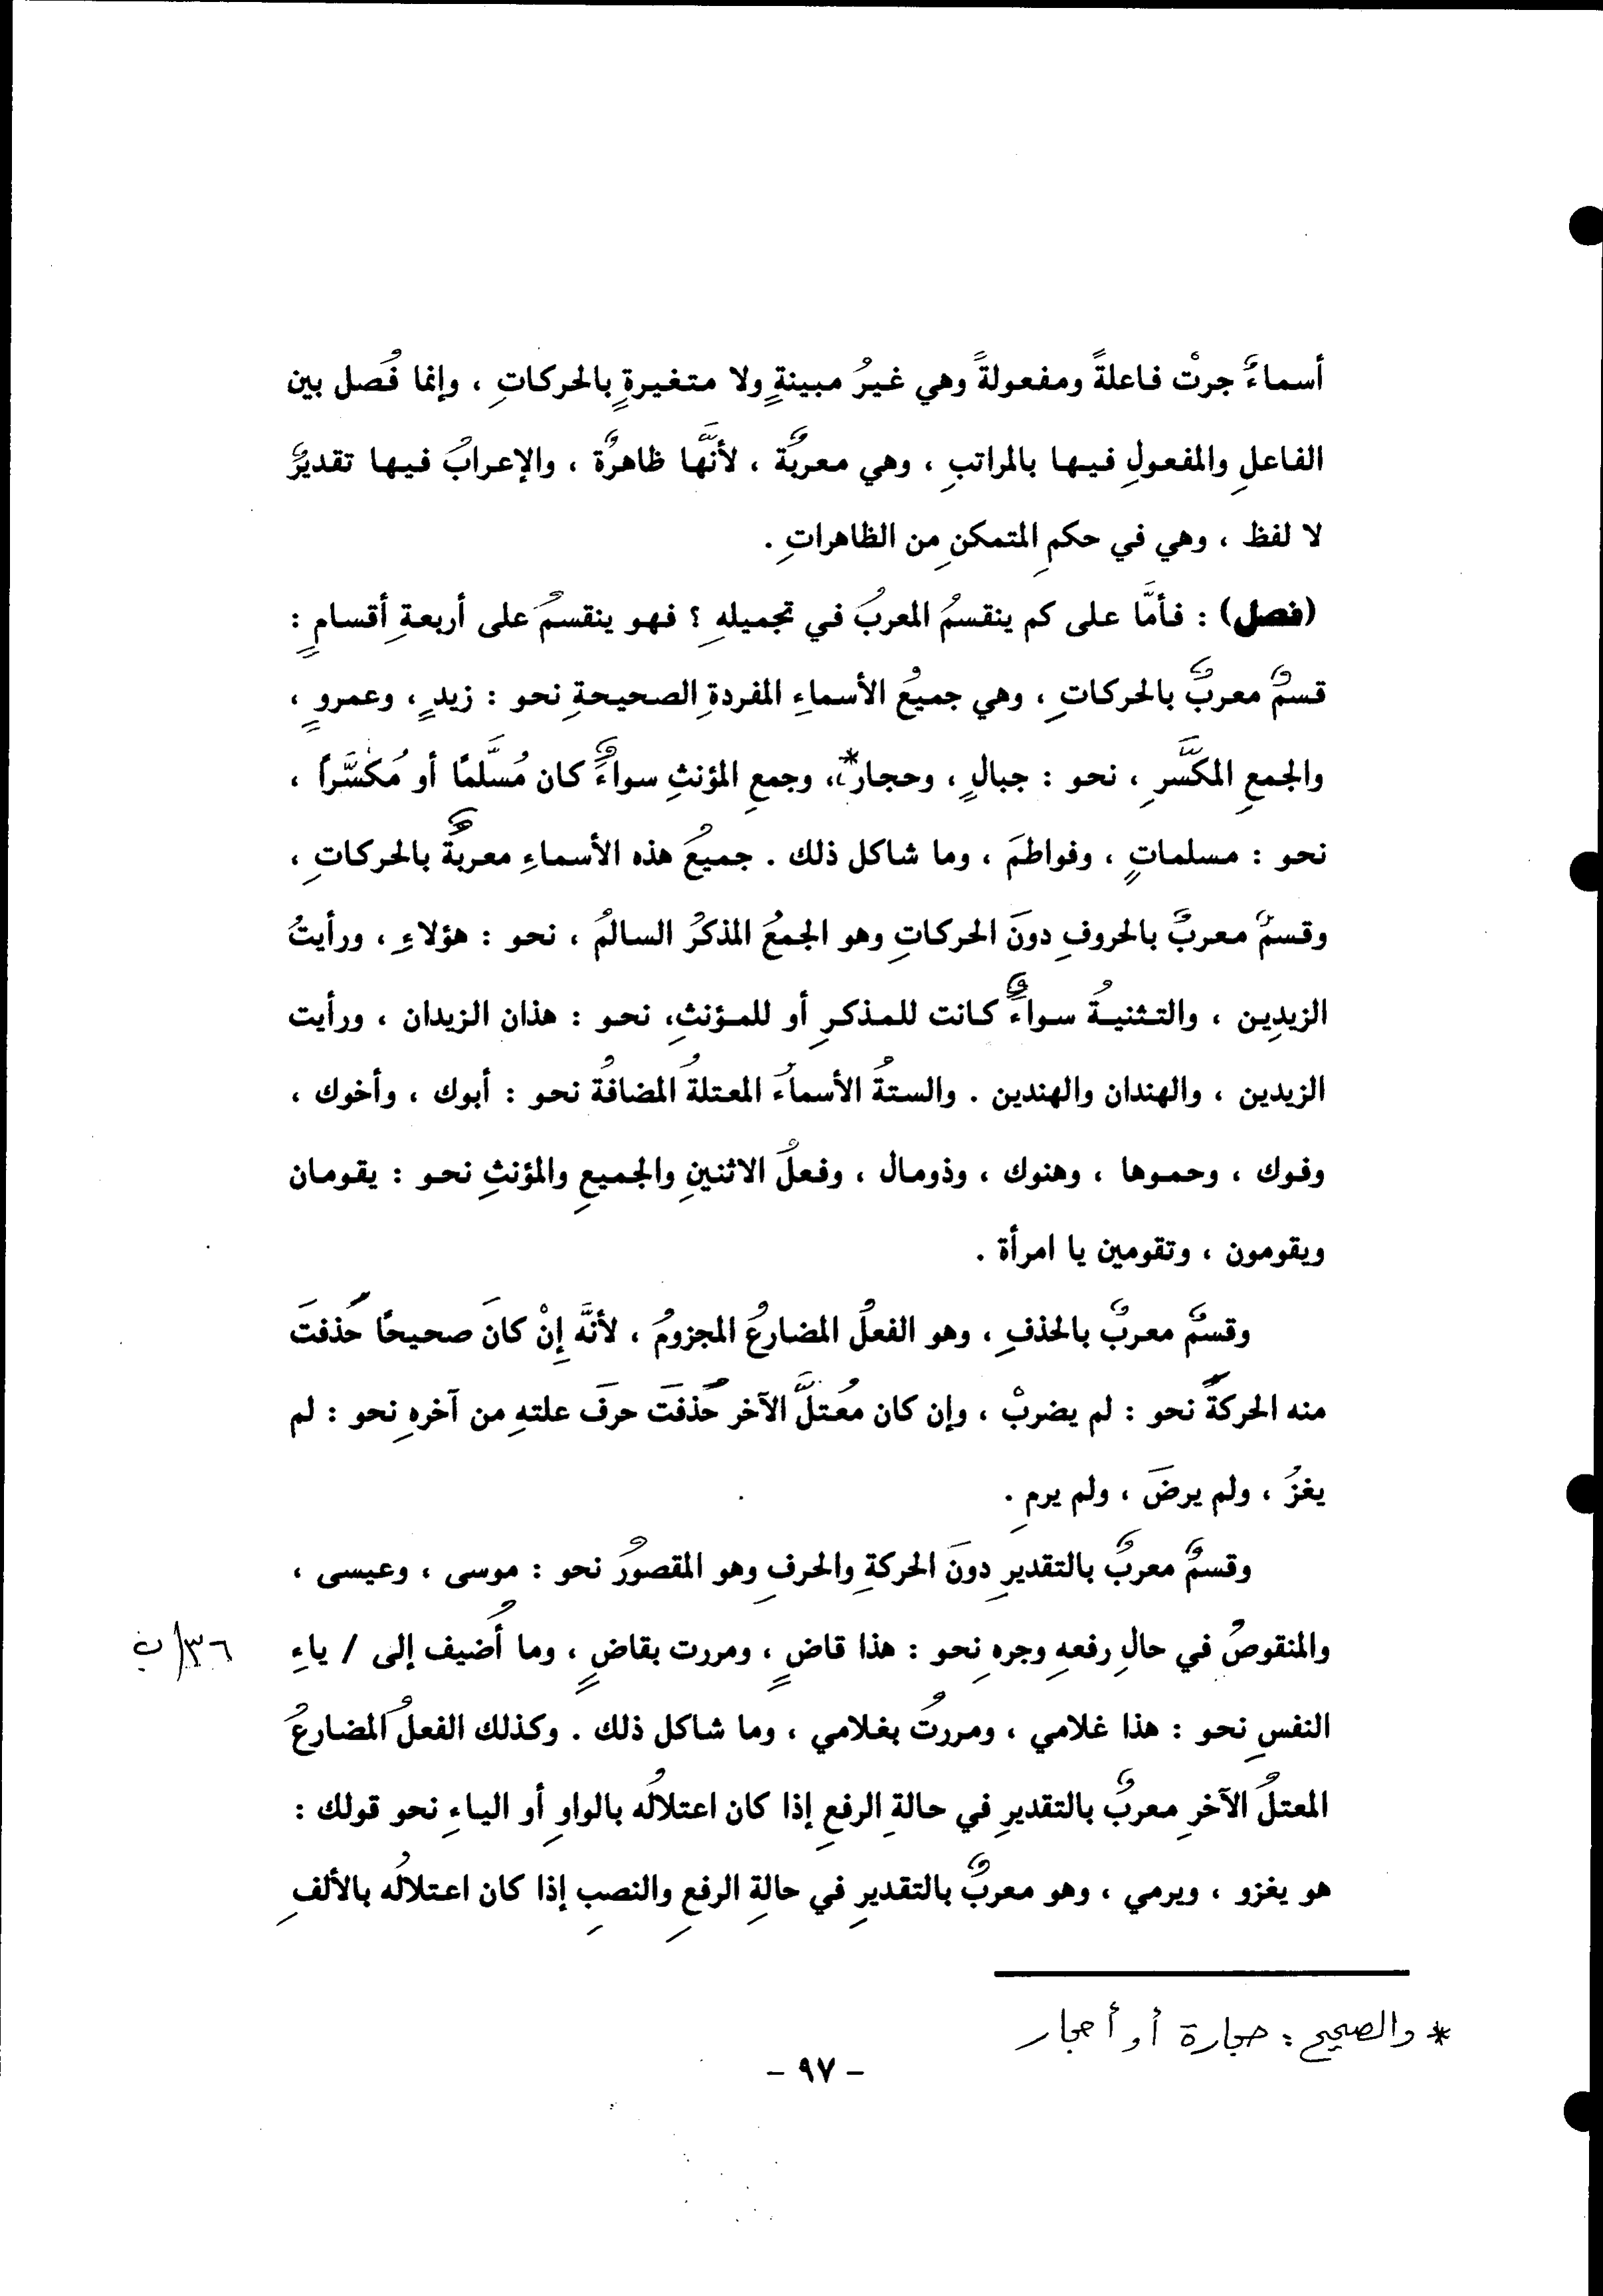 أسماءٌ جرتْ فاعلةً ومفعولةً وهي غيرُ مبينةٍ ولا متغيرةٍ بالحركاتِ ، وإنما فُصل بين
الفاعلِ والمفعولِ فيها بالمراتبِ ، وهي معربةٌ ، لأنَّها ظاهرةٌ ، والإعرابُ فيها تقديرٌ
لا لفظ ، وهي في حكمِ المتمكنِ من الظاهراتِ .
(فصل) : فأمَّا على كم ينقسمُ المعربُ في تجميلهِ ؟ فهو ينقسمُ على أربعةِ أقسامٍ :
قسمٌ معربٌ بالحركاتِ ، وهي جميعُ الأسماءِ المفردةِ الصحيحةِ نحو : زيدٍ ، وعمروٍ ،
والجمعِ المكسَّرِ ، نحو : جبالٍ ، وحجار* ، وجمعِ المؤنثِ سواءٌ كان مُسَلَّمًا أو مُكَسَّراً ،
نحو : مسلماتٍ ، وفواطمَ ، وما شاكل ذلك . جميعُ هذه الأسماءِ معربةٌ بالحركاتِ ،
وقسمٌ معربٌ بالحروفِ دونَ الحركاتِ وهو الجمعُ المذكرُ السالمُ ، نحو : هؤلاءِ ، ورأيتُ
الزيدِين ، والتثنيةُ سواءٌ كانت للمذكرِ أو للمؤنثِ، نحو : هذان الزيدان ، ورأيت
الزيدين ، والهندان والهندين . والستةُ الأسماءُ المعتلةُ المضافةُ نحو : أبوك ، وأخوك ،
وفوك ، وحموها ، وهنوك ، وذومال ، وفعلُ الاثنينِ والجميعِ والمؤنثِ نحو : يقومان
ويقومون ، وتقومين يا امرأة .
وقسمٌ معربٌ بالحذفِ ، وهو الفعلُ المضارعُ المجزومُ ، لأنَّه إِنْ كانَ صحيحًا حَذفتَ
منه الحركةَ نحو : لم يضربْ ، وإن كان مُعتلَّ الآخر حَذفتَ حرفَ علتهِ من آخرهِ نحو : لم
يغزُ ، ولم يرضَ ، ولم يرمِ .
وقسمٌ معربٌ بالتقديرِ دونَ الحركةِ والحرفِ وهو المقصورُ نحو : موسى ، وعيسى ،
والمنقوصُ في حالِ رفعهِ وجرهِ نحو : هذا قاضٍ ، ومررت بقاضٍ ، وما أُضيف إلى / ياءِ ٣٦/ب
النفسِ نحو : هذا غلامي ، ومررتُ بغلامي ، وما شاكل ذلك . وكذلك الفعلُ المضارعُ
المعتلُ الآخرِ معربٌ بالتقديرِ في حالةِ الرفعِ إذا كان اعتلالُه بالواوِ أو الياءِ نحو قولك :
هو يغزو ، ويرمي ، وهو معربٌ بالتقديرِ في حالةِ الرفعِ والنصبِ إذا كان اعتلالُه بالألفِ
* والصحيح : حجارة أو أحجار
- ٩٧ -